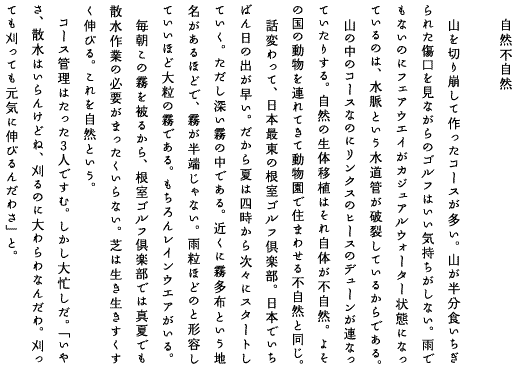 自然不自然
山を切り崩して作ったコースが多い。山が半分食いちぎ
られた傷口を見ながらのゴルフはいい気持ちがしない。雨で
もないのにフェアウエイがカジュアルウォーター状態になっ
ているのは、水脈という水道管が破裂しているからである。
山の中のコースなのにリンクスのヒースのデューンが連なっ
ていたりする。自然の生体移植はそれ自体が不自然。よそ
の国の動物を連れてきて動物園で住まわせる不自然と同じ。
話変わって、日本最東の根室ゴルフ倶楽部。日本でいち
ばん日の出が早い。だから夏は四時から次々にスタートし
ていく。ただし深い霧の中である。近くに霧多布という地
名があるほどで、霧が半端じゃない。雨粒ほどのと形容し
ていいほど大粒の霧である。もちろんレインウエアがいる。
毎朝この霧を被るから、根室ゴルフ倶楽部では真夏でも
散水作業の必要がまったくいらない。芝は生き生きすくす
く伸びる。これを自然という。
コース管理はたった3人ですむ。しかし大忙しだ。「いや
さ、散水はいらんけどね、刈るのに大わらわなんだわ。刈っ
ても刈っても元気に伸びるんだわさ」と。